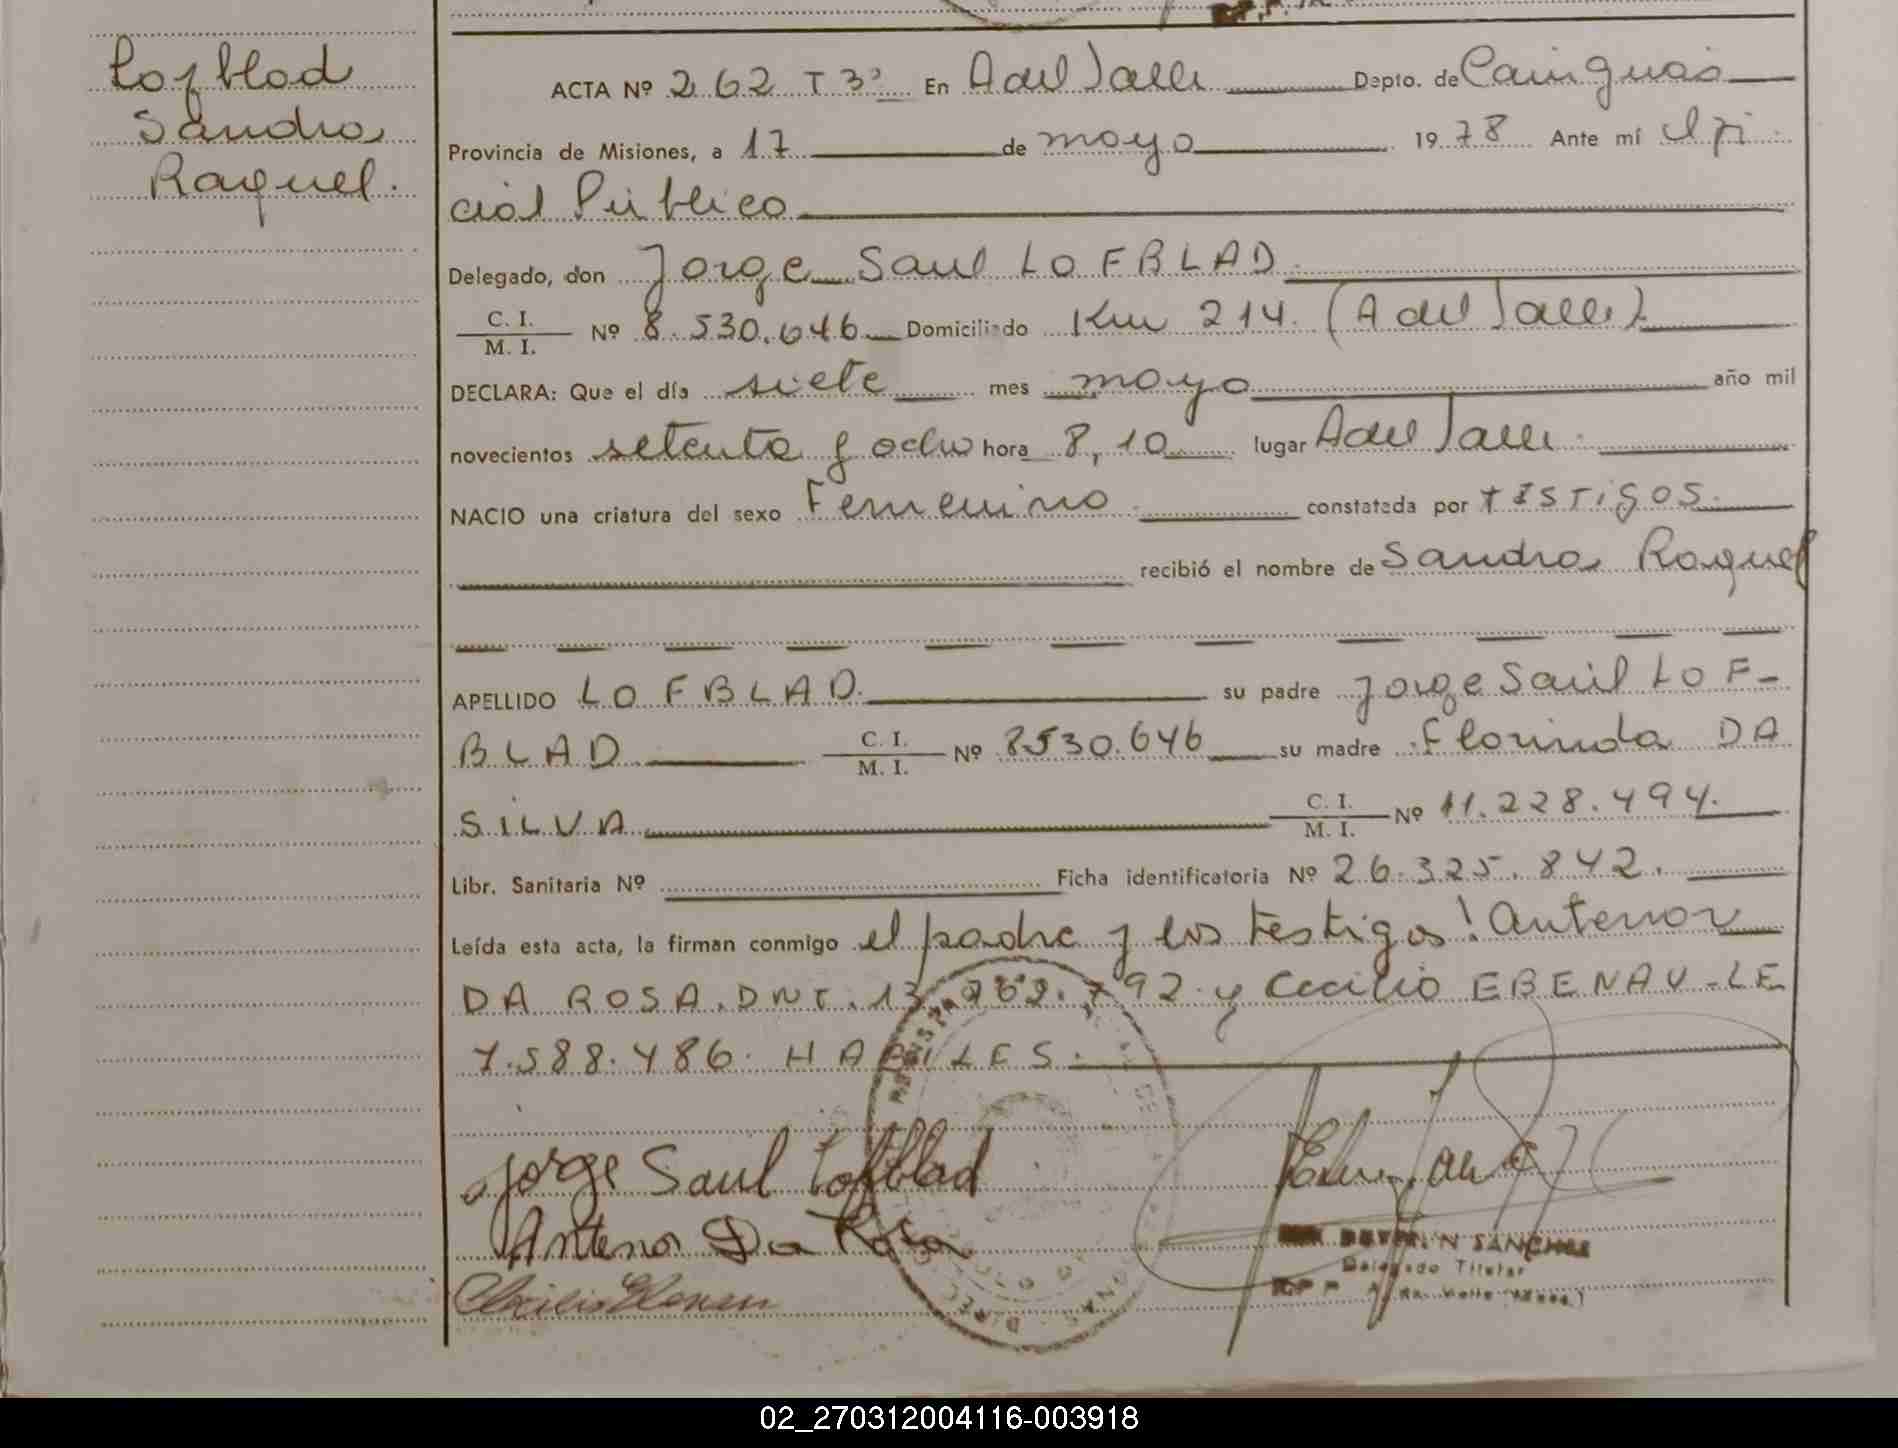 Lofblad
Sandra
Raquel.
ACTA Nº 262 T 3º En A del Valle Depto. de Cainguás
Provincia de Misiones, a 17 de mayo 1978 Ante mí Ofi
cial Público
Delegado, don Jorge Saul LOFBLAD
C. I.
M. I.
Nº 8.530.646 Domiciliado Km 214. (A del Valle)
DECLARA: Que el día siete mes mayo año mil
novecientos setenta y ocho hora 8,10 lugar A del Valle
NACIO una criatura del sexo Femenino constatada por testigos.
recibió el nombre de Sandra Raquel
APELLIDO LOFBLAD su padre Jorge Saúl LOF-
BLAD C. I.
M. I. Nº 8530.646 su madre Florinda DA
SILVA C. I.
M. I. Nº 11.228.494.
Libr. Sanitaria Nº Ficha identificatoria Nº 26.325.842.
Leída esta acta, la firman conmigo el padre y los testigos: Antenor
DA ROSA. DNI. 13 792 y Cecilio EBENAU-LE
7.588.486. HABILES.
Jorge Saul Lofblad
Antenor Da Rosa
SANCHEZ
Delegado Titular
02_270312004116-003918